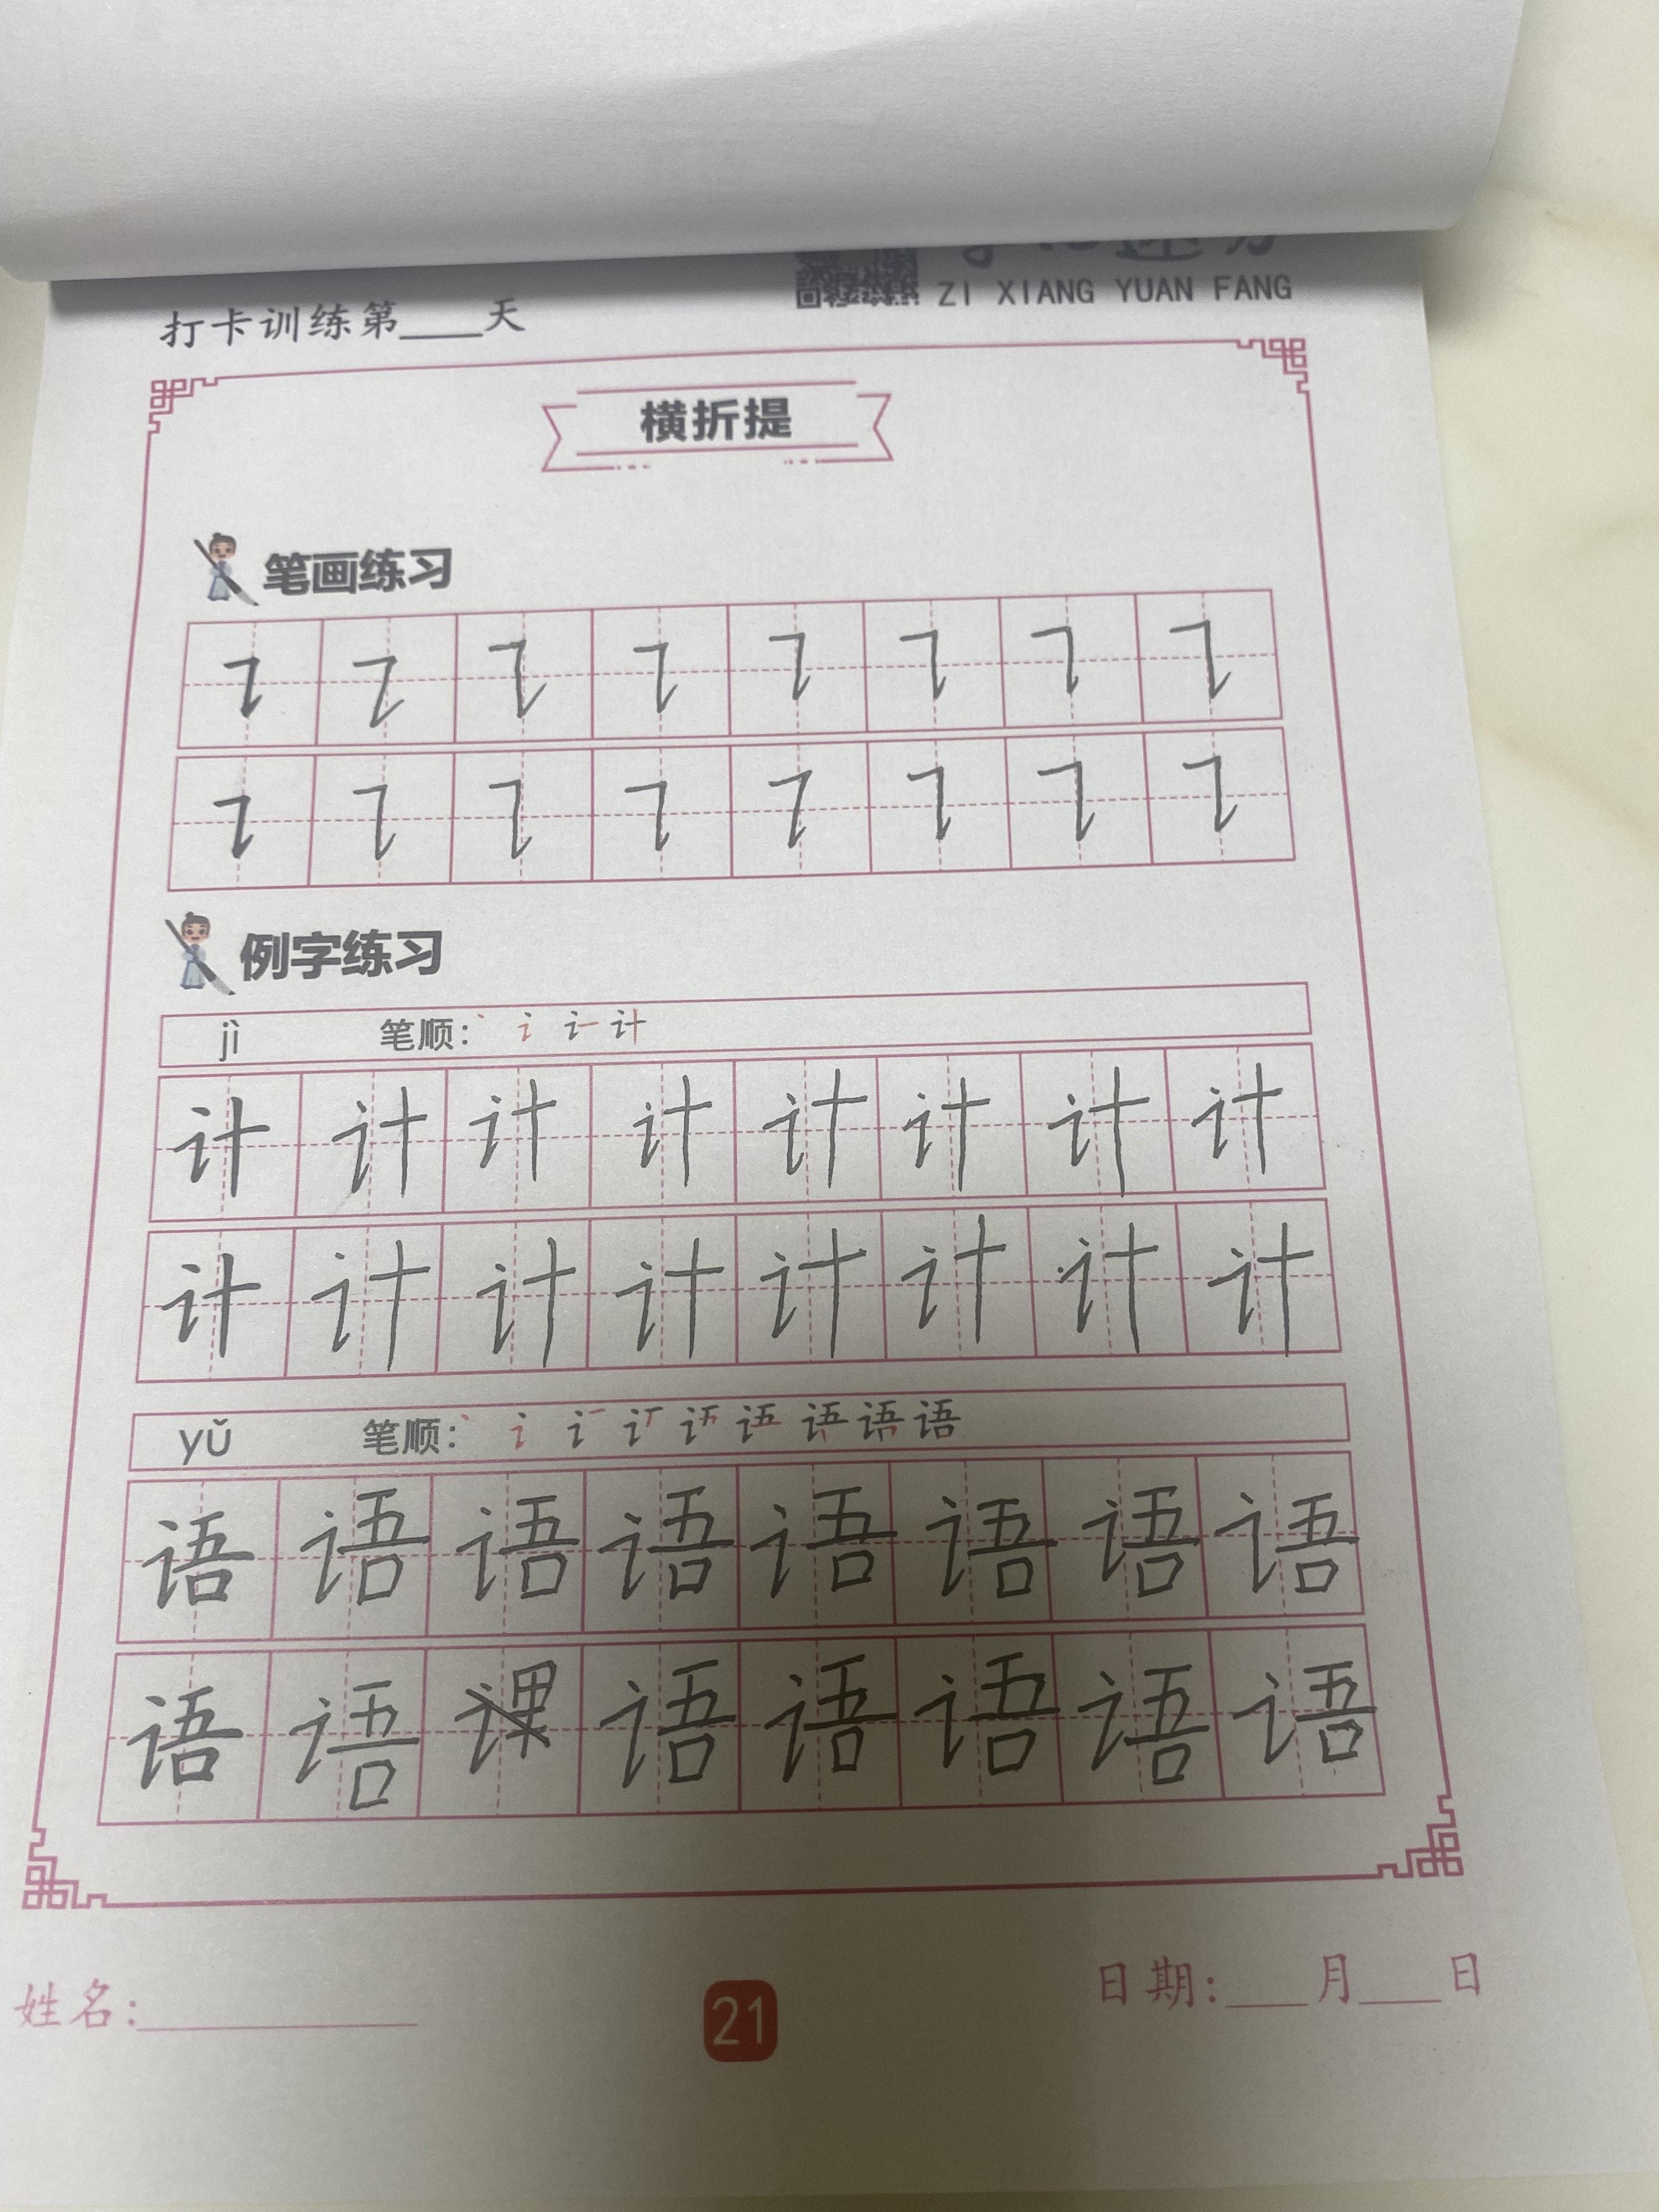 ZI XIANG YUAN FANG
打卡训练第____天
横折提
笔画练习
例字练习
jì 笔顺:
计 计 计 计 计 计 计 计
计 计 计 计 计 计 计 计
yǔ 笔顺: 语
语 语 语 语 语 语 语 语
语 语 课 语 语 语 语 语
姓名:
21
日期:___月___日